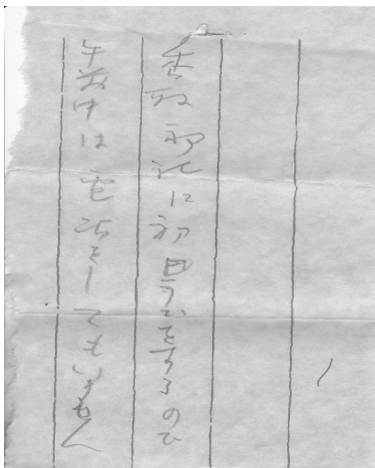 香取神社に初男がをするので
午前中は電話をしてもいません